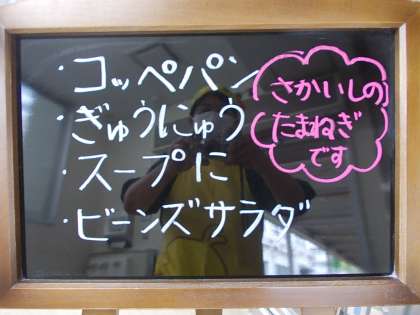 ・コッペパン
・ぎゅうにゅう
・スープに
・ビーンズサラダ
さかいしの
たまねぎ
です